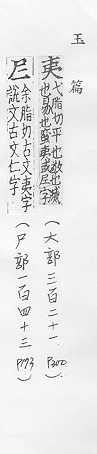 玉篇
夷 弋脂切平也敉也滅
也易也蛮夷或尸字
(大部三百二十一 P200).
𡰥 余脂切古文夷字
說文古文仁字
(尸部一百四十三 P173)